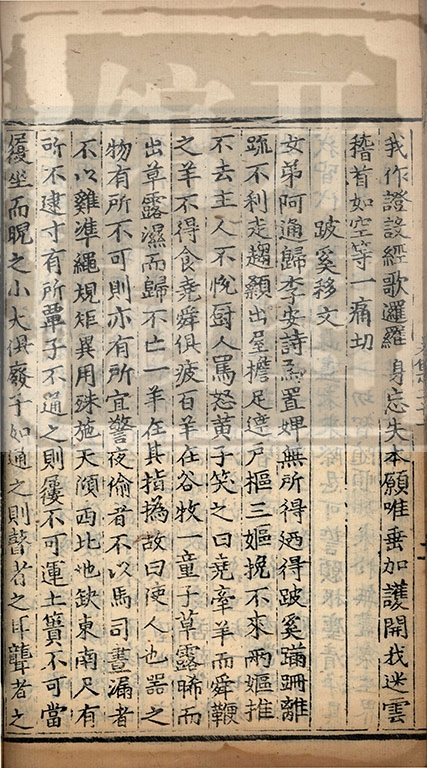 我作證設經歌邏羅身忘失本願唯垂加護開我迷雲
稽首如空等一痛切
跛奚移文
女弟阿通歸李安詩爲置婢無所得迺得跛奚蹣跚離
疏不利走趨顙出屋檐足達戶樞三嫗挽不來兩嫗推
不去主人不悅厨人罵怒黄子笑之曰堯牽羊而舜鞭
之羊不得食堯舜俱疲百羊在谷牧一童子草露晞而
出草露濕而歸不亡一羊在其指撝故曰使人也器之
物有所不可則亦有所宜警夜偷者不以馬司晝漏者
不以雞準繩規矩異用殊施天傾西北地缺東南尺有
所不建寸有所覃子不通之則屨不可運土簣不可當
履坐而睨之小大俱廢子如通之則瞽者之耳聾者之